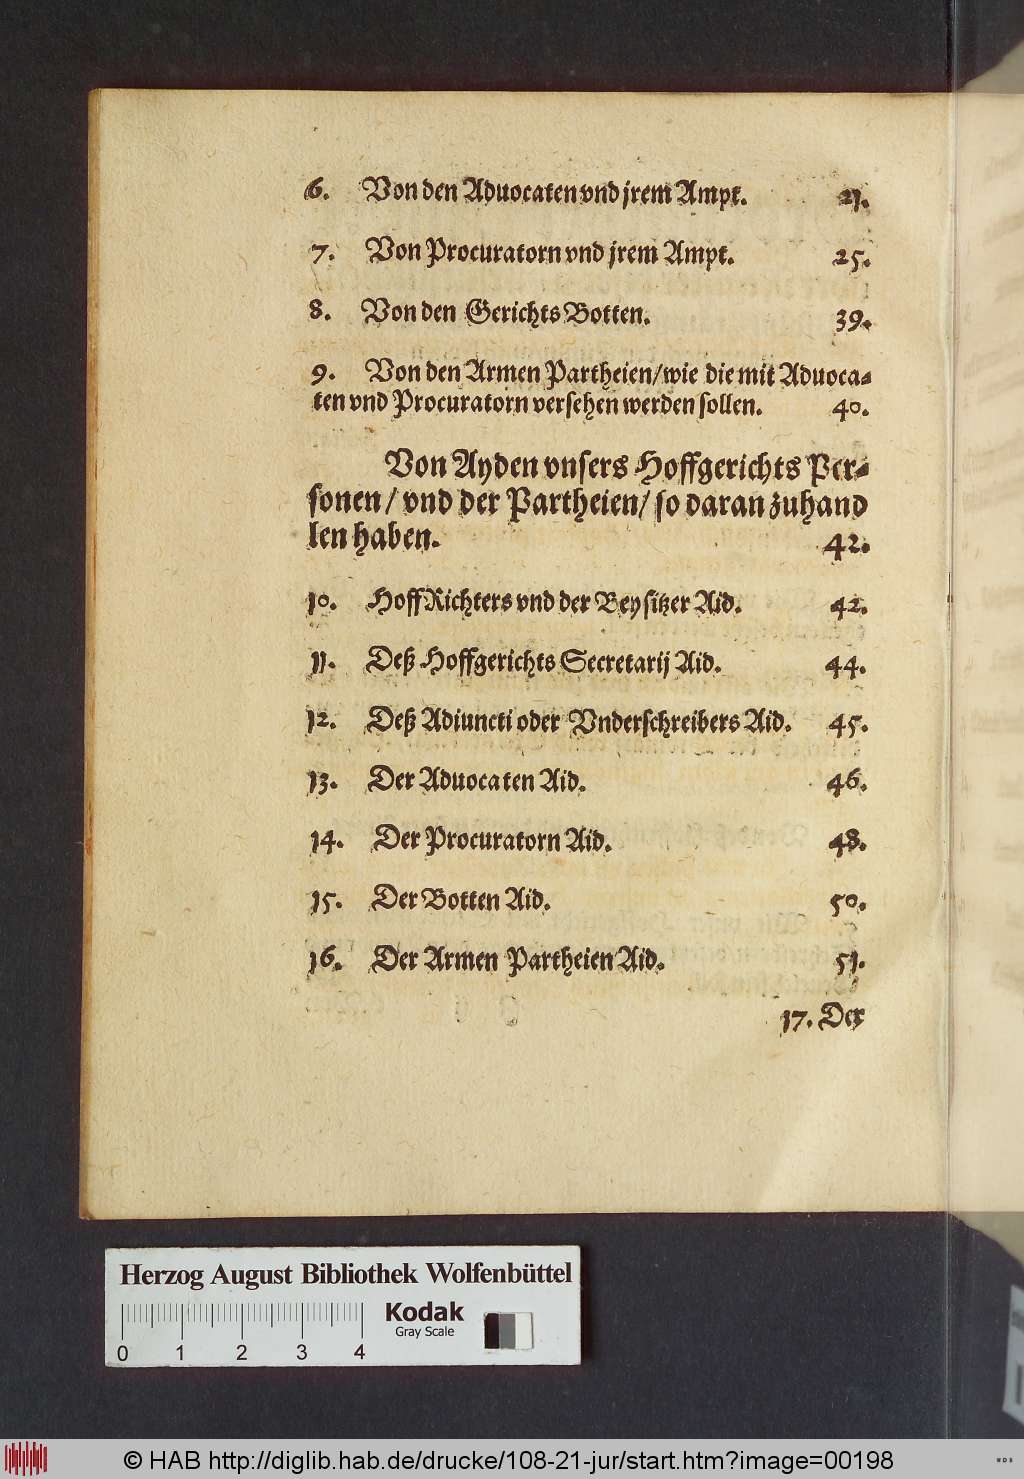 6. Von den Aduocaten vnd jrem Ampt. 21.
7. Von Procuratorn vnd jrem Ampt. 25.
8. Von den Gerichts Botten. 39.
9. Von den Armen Partheien/ wie die mit Aduoca-
ten vnd Procuratorn versehen werden sollen. 40.
Von Ayden vnsers Hoffgerichts Per-
sonen / vnd der Partheien/ so daran zuhand
len haben. 42.
10. HoffRichters vnd der Beysitzer Aid. 42.
11. Deß Hoffgerichts Secretarij Aid. 44.
12. Deß Adiuncti oder Vnderschreibers Aid. 45.
13. Der Aduocaten Aid. 46.
14. Der Procuratorn Aid. 48.
15. Der Botten Aid. 50.
16. Der Armen Partheien Aid. 51.
17. Der
Herzog August Bibliothek Wolfenbüttel
Kodak
Gray Scale
0 1 2 3 4
© HAB http://diglib.hab.de/drucke/108-21-jur/start.htm?image=00198